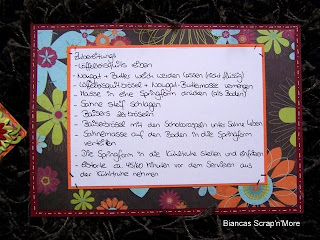 Zubereitung:
- Nougat + Butter weich werden lassen (nicht flüssig)
- Masse in eine Springform drücken (als Boden)
- Sahne steif schlagen
- Baisers zerbröseln
- Baiserbrösel mit den Schokoraspeln unter Sahne heben
- Sahnemasse auf den Boden in die Springform
verteilen
- Die Springform in die Kühltruhe stellen und einfrieren
- Eistorte ca. 45/60 Minuten vor dem Servieren aus
der Kühltruhe nehmen
Biancas Scrap'n'More